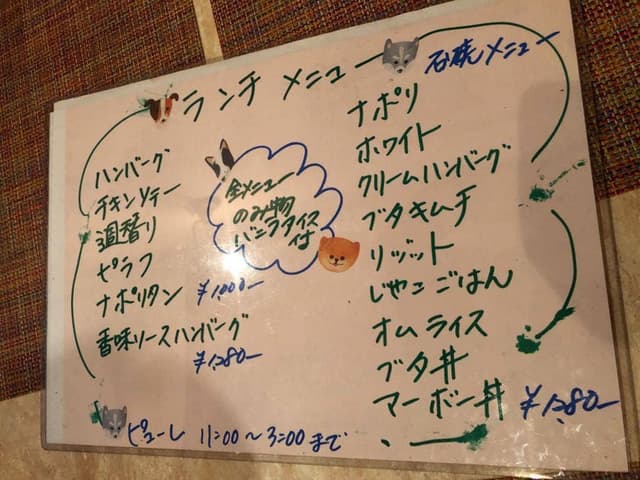 ランチ メニュー
ハンバーグ
チキンソテー
週替り
ピラフ
ナポリタン ¥1,000-
香味ソースハンバーグ
¥1,280-
全メニュー
のみ物
バニラアイス
付
石焼メニュー
ナポリ
ホワイト
クリームハンバーグ
ブタキムチ
リゾット
じゃこごはん
オムライス
ブタ丼
マーボー丼 ¥1,280-
ピューレ 11:00～3:00まで